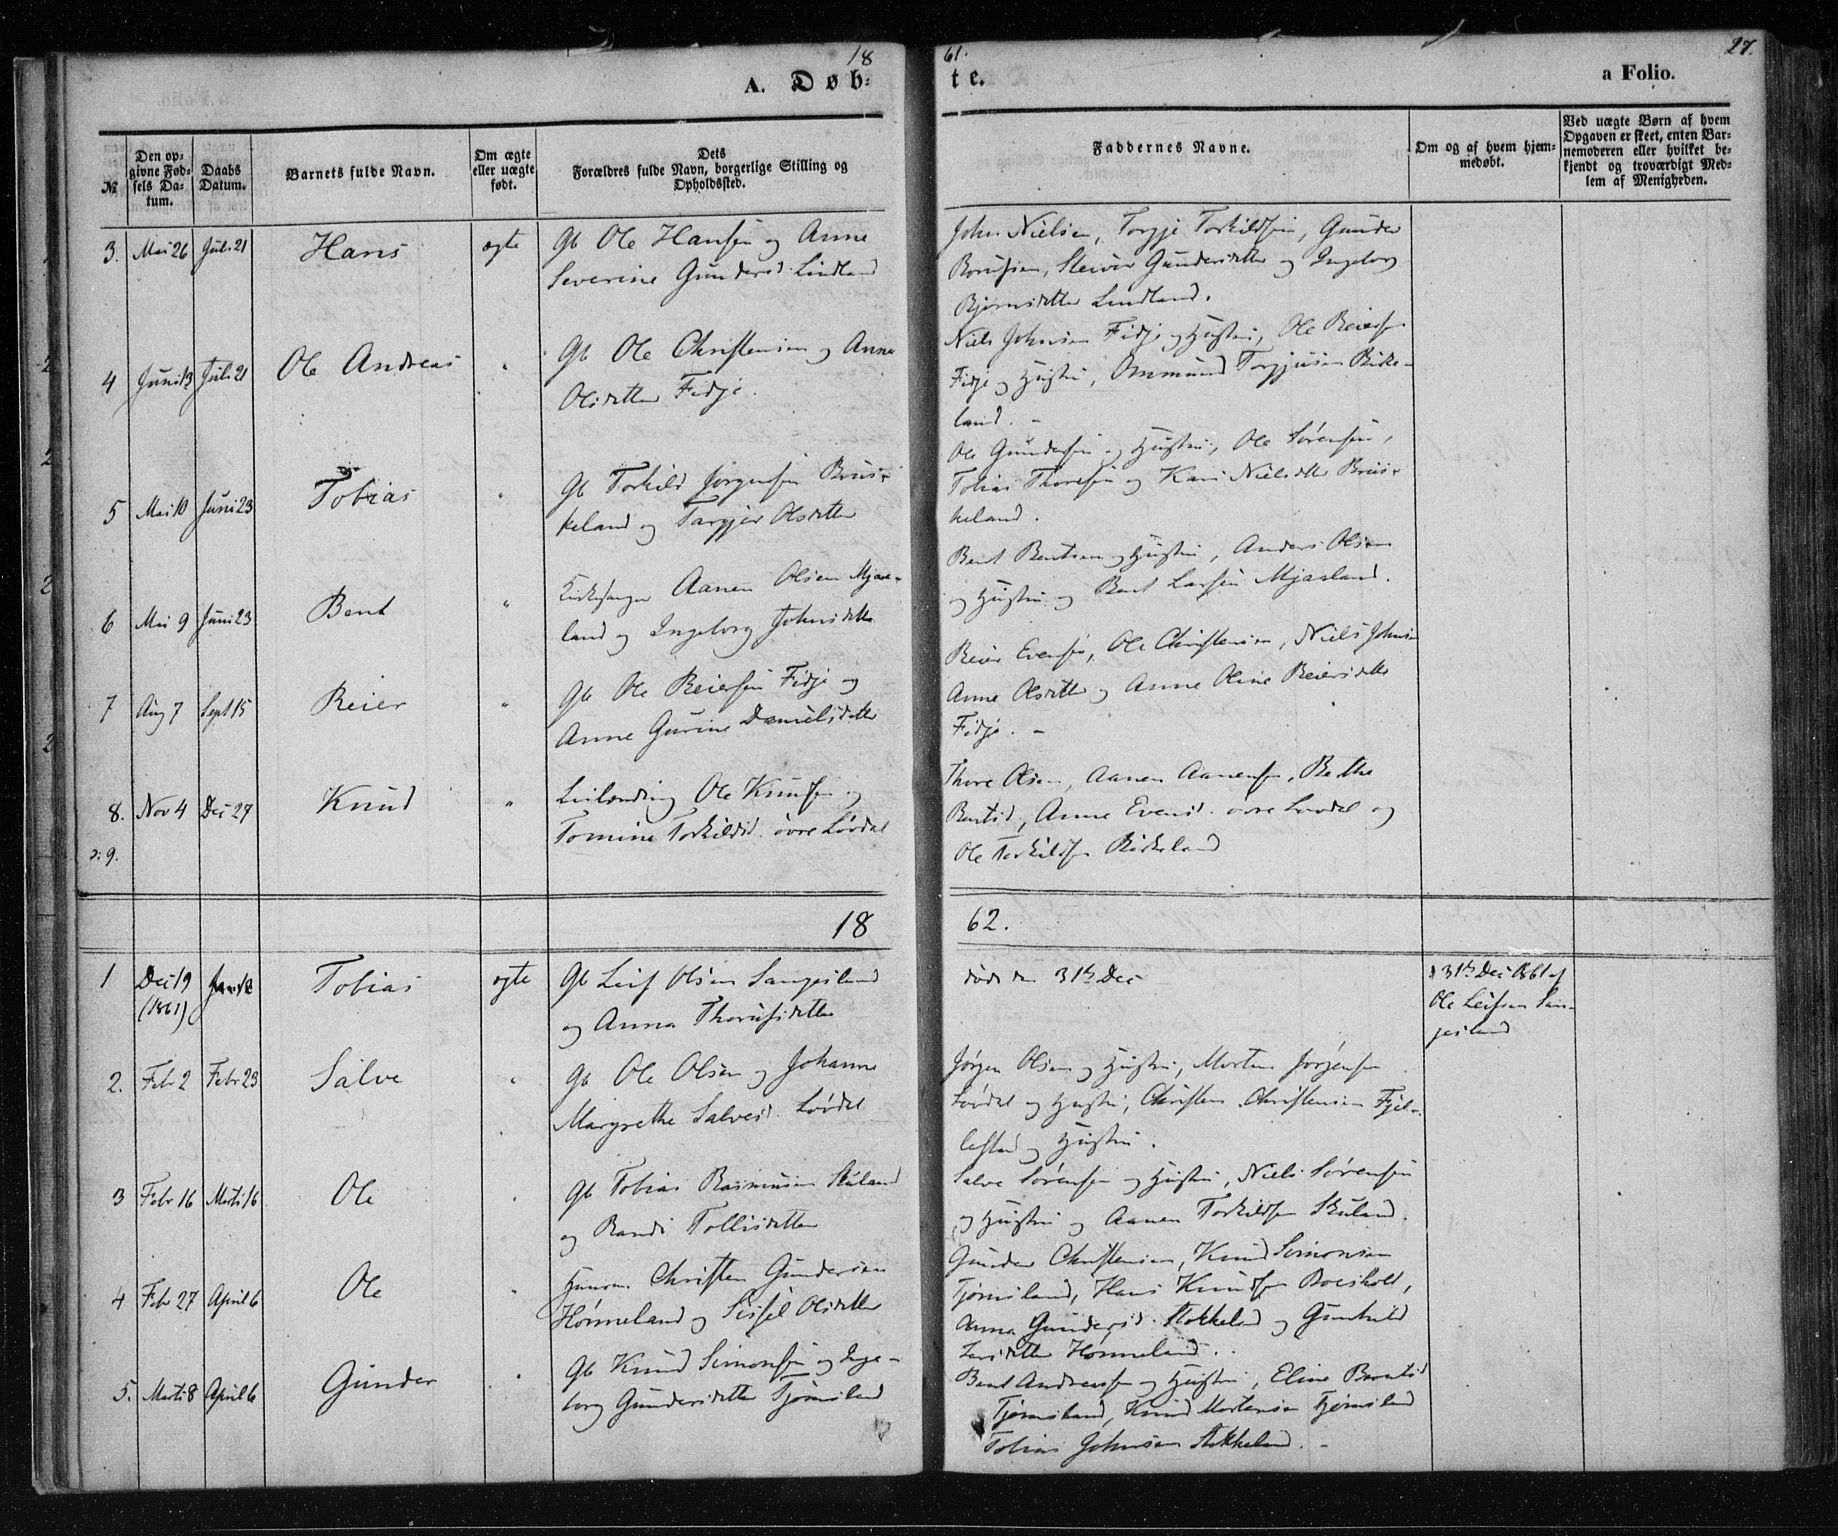 18 61. 27.
A. Døb- te. a Folio.
№
Den opgivne Fødsels Datum.
Daabs Datum.
Barnets fulde Navn.
Om ægte eller uægte født.
Dets Forældres fulde Navn, borgerlige Stilling og Opholdssted.
Faddernes Navne.
Om og af hvem hjemmedøbt.
Ved uægte Børn af hvem Opgaven er skeet, enten Barnemoderen eller hvilket bekjendt og troværdigt Medlem af Menigheden.
3. Mai 26 Juli 21 Hans ægte Gb Ole Hansen og Anne
Severine Gundersd. Lindland
John Nielsen, Torgje Torkildsen, Gunder
Gundersdatter og Ingeborg
Bjørnsdatter Lindland.
4 Juni 13 Juli 21 Ole Andreas " Gb Ole Christensen og Anne
Olsdatter Fidje.
Niels Johnsen Fidje og Hustru, Ole Reiersen
Fidje og Hustru, Ommund Torgjusen Birke-
land. -
5 Mai 10 Juni 23 Tobias " Gb Torkild Jørgensen Brus-
keland og Targjer Olsdatter
Ole Gundersen og Hustru, Ole Sørensen,
Tobias Thoresen og Kari Nielsdtter Brus-
keland.
6 Mai 9 Juni 23 Bent " Kirkesanger Aanen Olsen Mjaa-
land og Ingeborg Johnsdatter
Bent Bentsen og Hustru, Anders Olsen
og Hustru og Bent Larsen Mjaaland.
7 Aug 7 Sept 15 Reier " Gb Ole Reiersen Fidje og
Anne Gurine Danielsdatter
Reier Evensen, Ole Christensen, Niels Johnsen
Anne Olsdatter og Anne Oline Reiersdatter
Fidje. -
8. Nov 4 Dec 27 Knud " Leilænding Ole Knudsen og
Tomine Torkildsd. øvre Løvdal
Thore Olsen, Aanen Aanensen, Berthe
Bentsd, Anne Evensd. øvre Løvdal og
Ole Torkildsen Birkeland
ɔ: 9.
18 62.
1 Dec 19
(1861) Tobias ægte Gb Leif Olsen Sangesland
og Anna Thorusdatter
døde den 31te Dec
d 31te Dec 1861 af
Ole Leifsen San-
gesland
2. Febr 2 Febr 23 Salve " Gb Ole Olsen og Johanne
Margrethe Salvesd. Løvdal
Jørgen Olsen og Hustru, Morten Jørgensen
Løvdal og Hustru, Christen Christensen Fjel-
lestad og Hustru.
3 Febr 16 Marts 16 Ole " Gb Tobias Rasmusen Skuland
og Randi Tollisdatter
Salve Sørensen og Hustru, Niels Sørensen
og Hustru og Aanen Torkildsen Skuland.
4 Febr 27 April 6 Ole " Husm. Christen Gundersen
Hønneland og Sissel Olsdatter
Gunder Christensen, Knud Simonsen
Tjomsland, Hans Knudsen
Anna Gundersd. Stokkeland og Gunhild
Larsdatter Hønneland.
5. Marts 8 April 6 Gunder " Gb Knud Simonsen og Inge-
borg Gundersdatter Tjomsland
Bent Andreassen og Hustru, Eline Berntsd
Tjomsland, Knud Mortensen Tjomsland
Tobias Johnsen Stokkeland. -